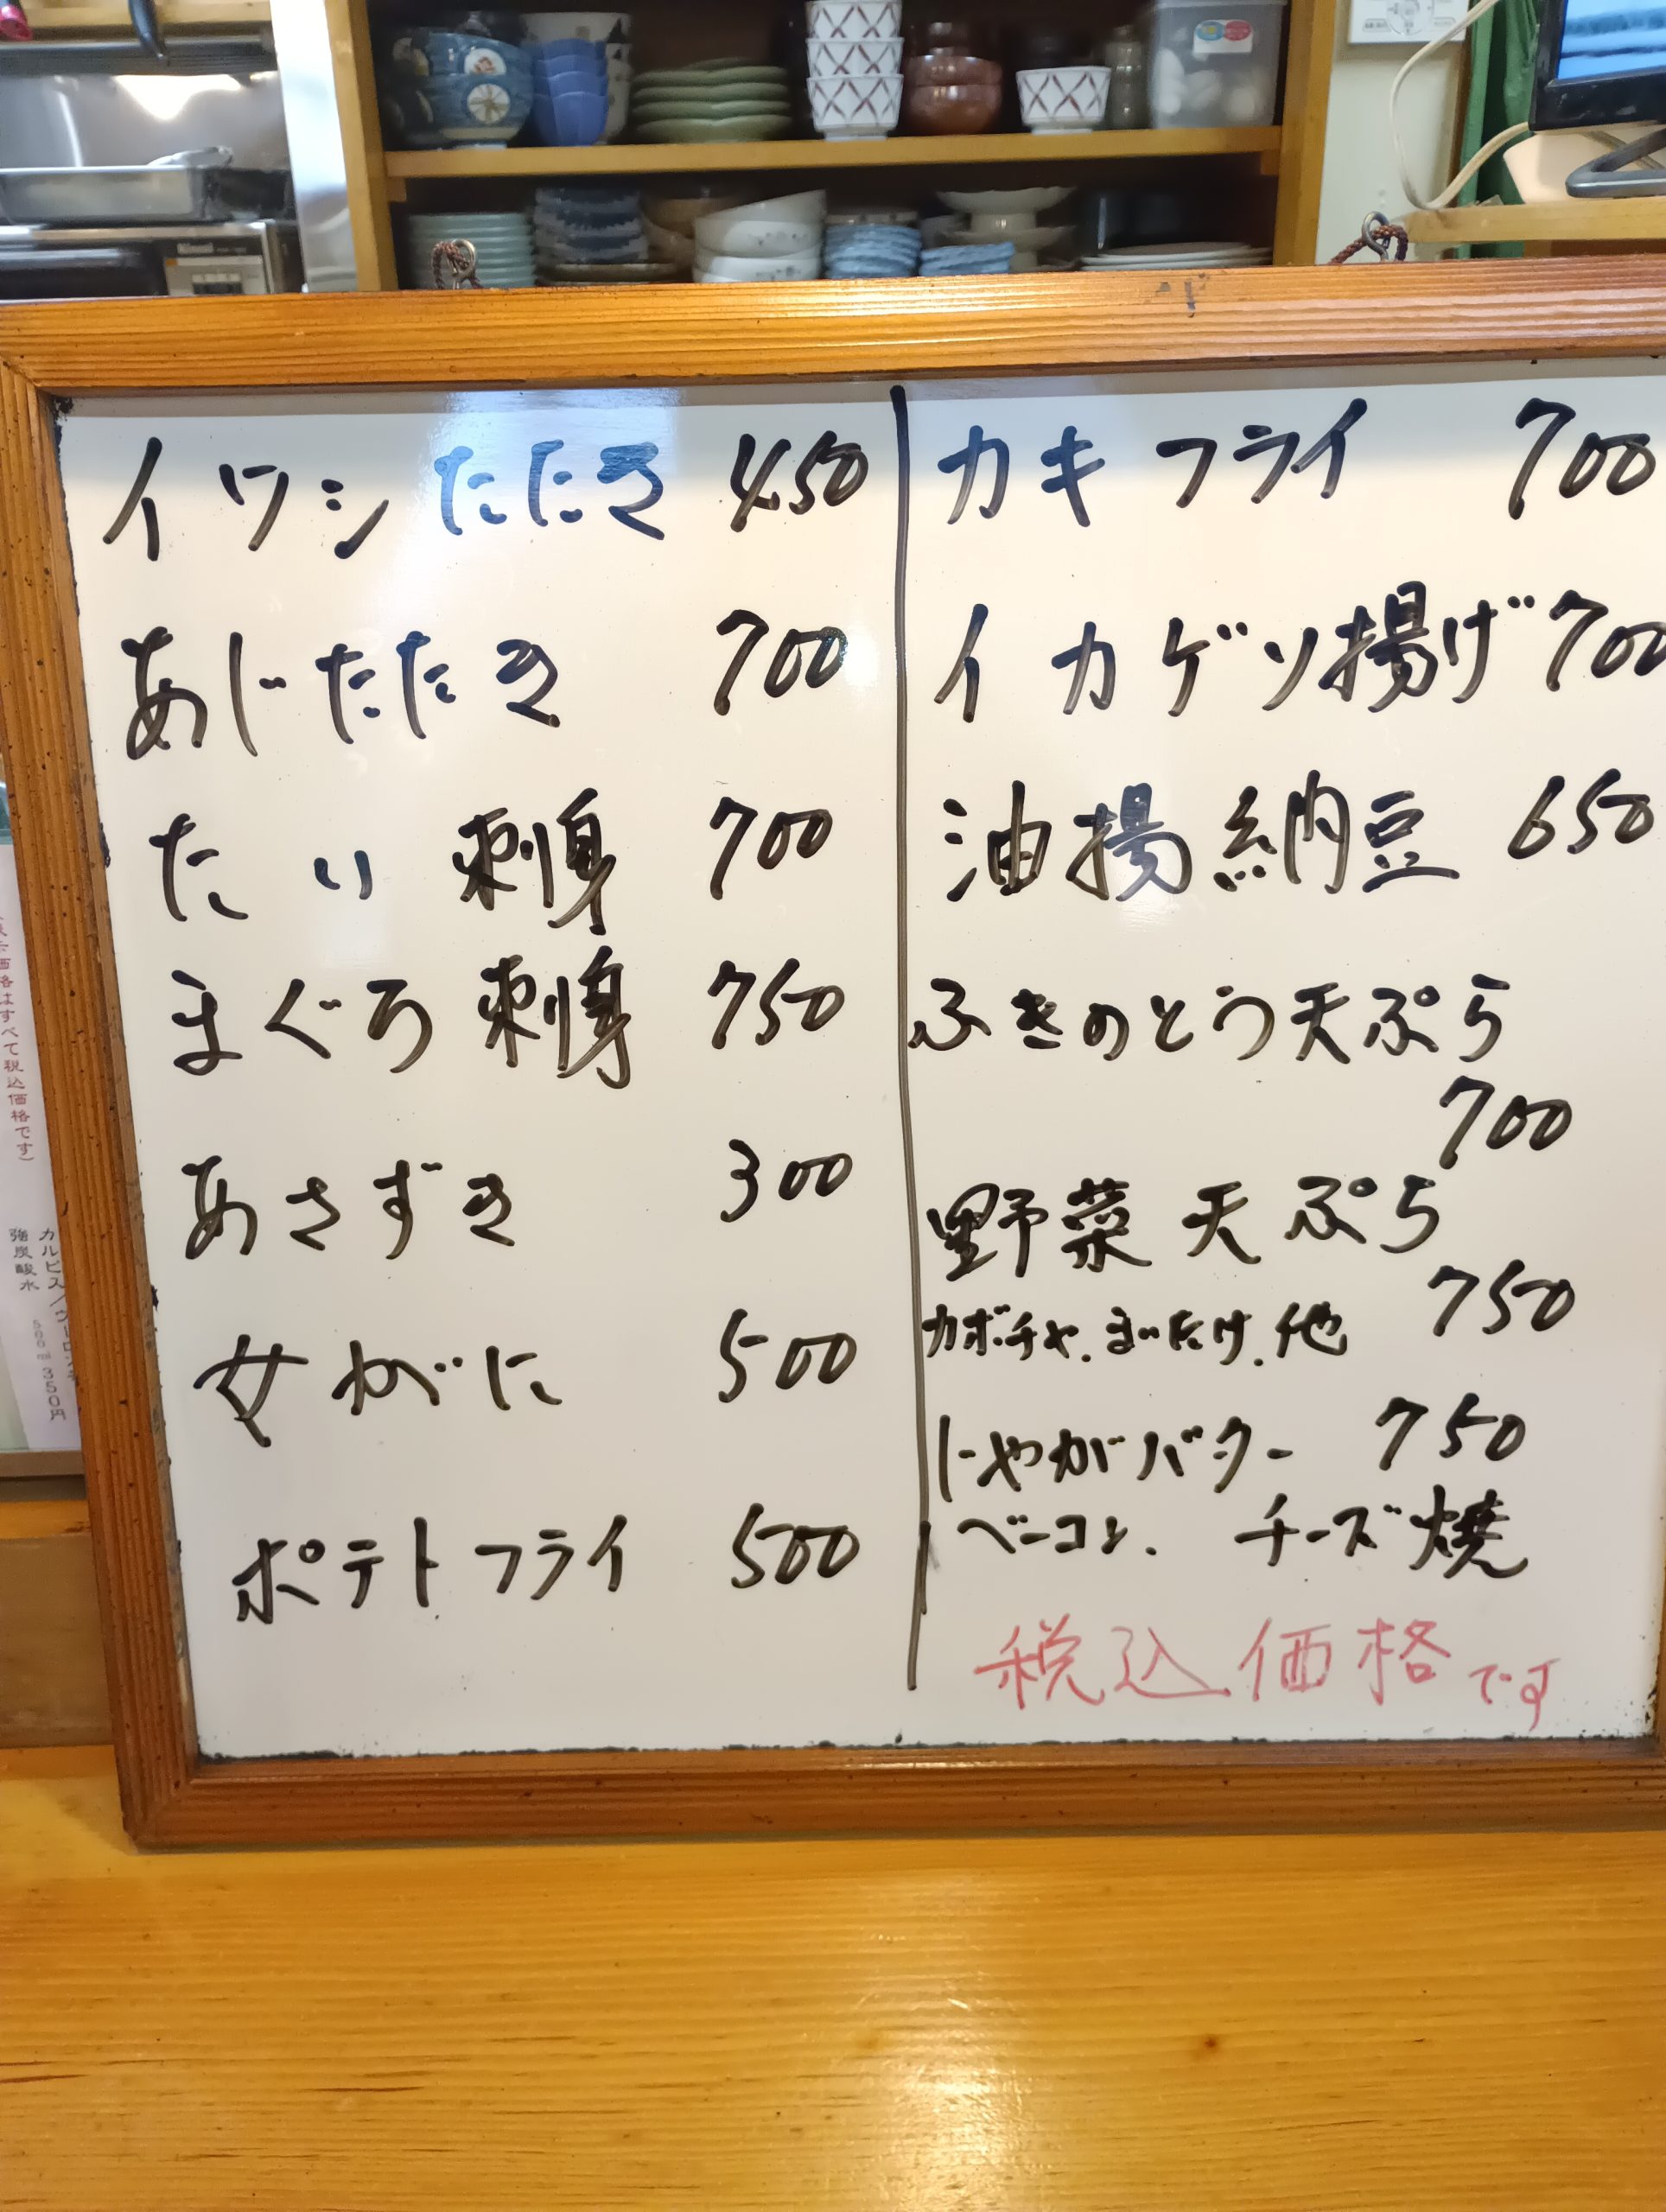 イワシたたき 450
あじたたき 700
たい刺身 700
まぐろ刺身 750
あさずき 300
女がに 500
ポテトフライ 500
カキフライ 700
イカゲソ揚げ 700
油揚納豆 650
ふきのとう天ぷら
700
野菜天ぷら
750
カボチャ.まいたけ.他
じゃがバター 750
ベーコン. チーズ焼
税込価格です
価格はすべて税込価格です)
強炭酸水 500ml 350円
Rinnai